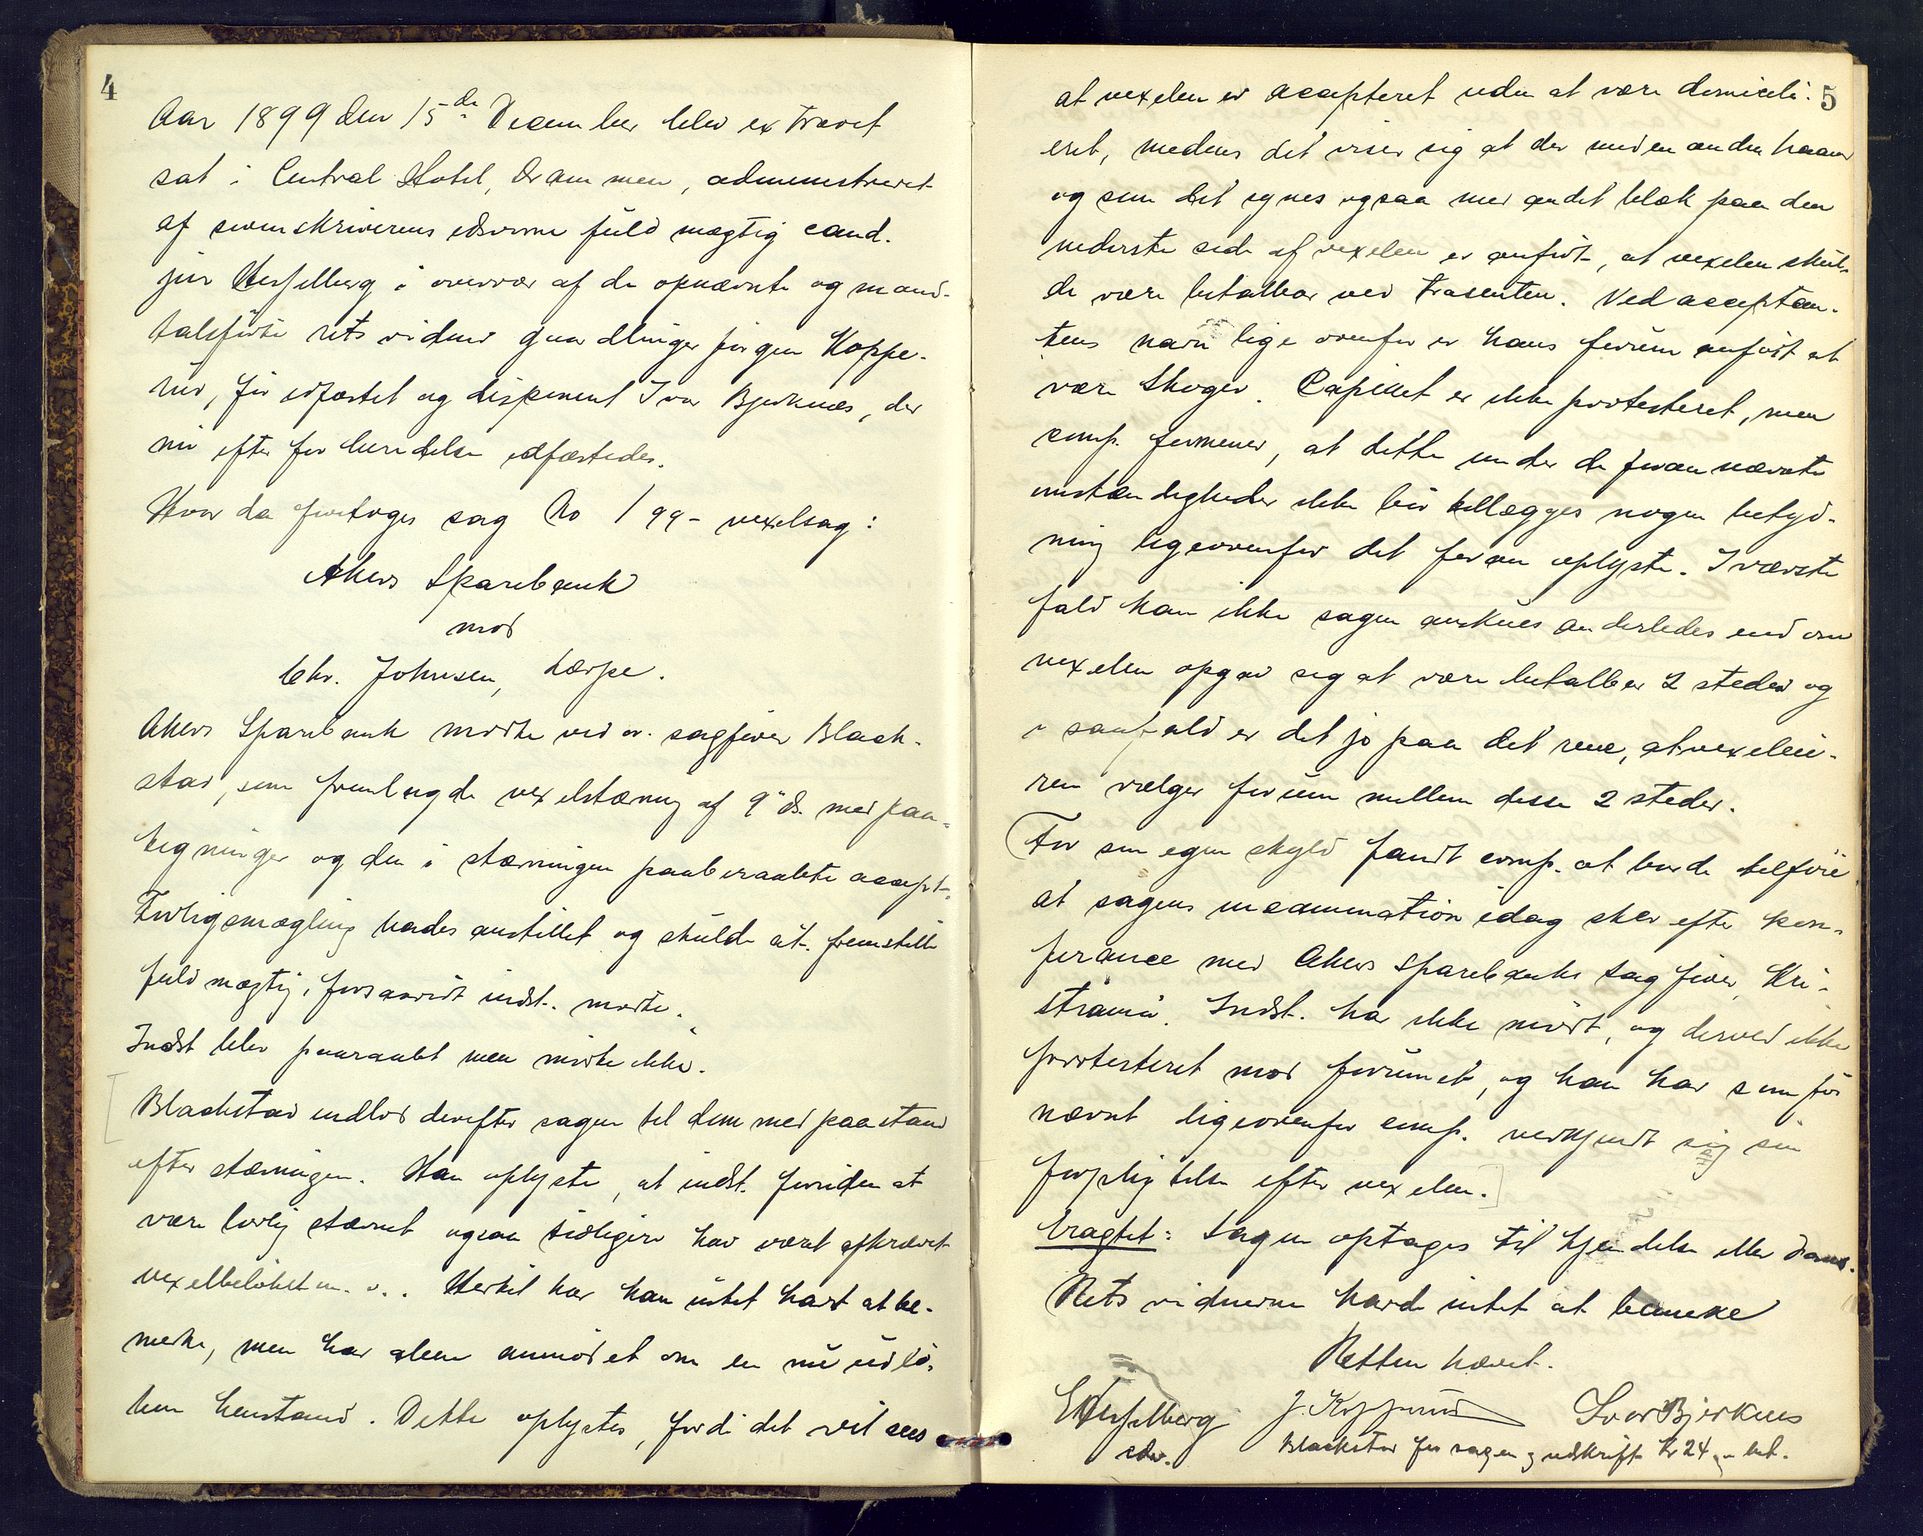 4
Aar 1899 den 15de December blev extraret
sat i Central Hotel, Drammen, administreret
af sorenskriverens edsvorne fuldmægtig cand.
jur Hesselberg i overvær af de opnævnte og mand-
talsførte retsvidner gaardbruger Jørgen Koppe-
rud, før edfæstet og disponent Ivar Bjerknæs, der
nu efter forberedelse edfæstedes.
Hvor da foretoges sag No 1/99 - vexelsag:
Akers Sparebank
mod
Chr. Johnsen, Lærpe.
Akers Sparebank mødte ved o. sagfører Black-
stad, som fremlagde vexelstævning af 9 ds. med paa-
tegninger og den i stævningen paaberaabte accept.
Forligsmægling havdes anstillet og skulde cit. fremstille
fuldmægtig, forsaavidt indst. mødte.
Indst blev paaraabt men mødte ikke.
Blackstad indlod derefter sagen til dom med paastand
efter stævningen. Han oplyste, at indst. foruden at
være lovlig stævnet ogsaa tidligere har været afkrævet
vexelbeløbet m. v.. Hertil har han intet havt at be-
mærke, men har alene anmodet om en nu udlø-
ben henstand. Dette oplystes, fordi det vil sees
5
at vexelen er accepteret uden at være domicili-
eret, medens det viser sig at der med en anden haand
og som det synes ogsaa med andet blæk paa den
nederste side af vexelen er anført, at vexelen skul-
de være betalbar ved trasenten. Ved acceptan-
tens navn lige ovenfor er hans forum anført at
være Skoger. Papiret er ikke protesteret, men
comp. formener, at dette under de foran nævnte
omstændigheder ikke bør tillægges nogen betyd-
ning ligeoverfor det foran oplyste. I værste
fald kan ikke sagen anskues anderledes end om
vexelen opgav sig at være betalbar 2 steder og
i saafald er det jo paa det rene, at vexeleie-
ren vælger forum mellem disse 2 steder.
For sin egen skyld fandt comp. at burde tilføie
at sagens incamination idag sker efter kon-
ferance med Akers Sparebanks sagfører, Kri-
stiania. Indst. har ikke mødt, og derved ikke
protesteret mod forumet, og han har som før
nævnt ligeoverfor comp. vedkjendt sig sin
forpligtelse efter vexelen.
Eragtet: Sagen optages til kjendelse eller dom.
Retsvidnerne havde intet at bemerke
Retten hævet.
EHesselberg J. Kopperud Ivar Bjerknes
edsv. Blackstad for sagen og udskrift kr 24 - bet.